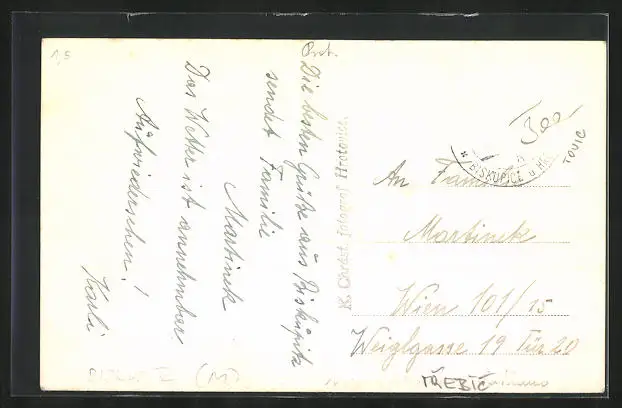 1,5
Die besten Grüße aus Biskupitz
sendet Familie
Martinek
Das Wetter ist annehmbar
Aufwiedersehen!
Karli
K. Chrást, fotograf Hrotovice.
* BISKUPICE u HRO
TOVIC
An Familie
Martinek
Wien 101/15
Weiglgasse 19 Tür 20
TŘEBÍČ